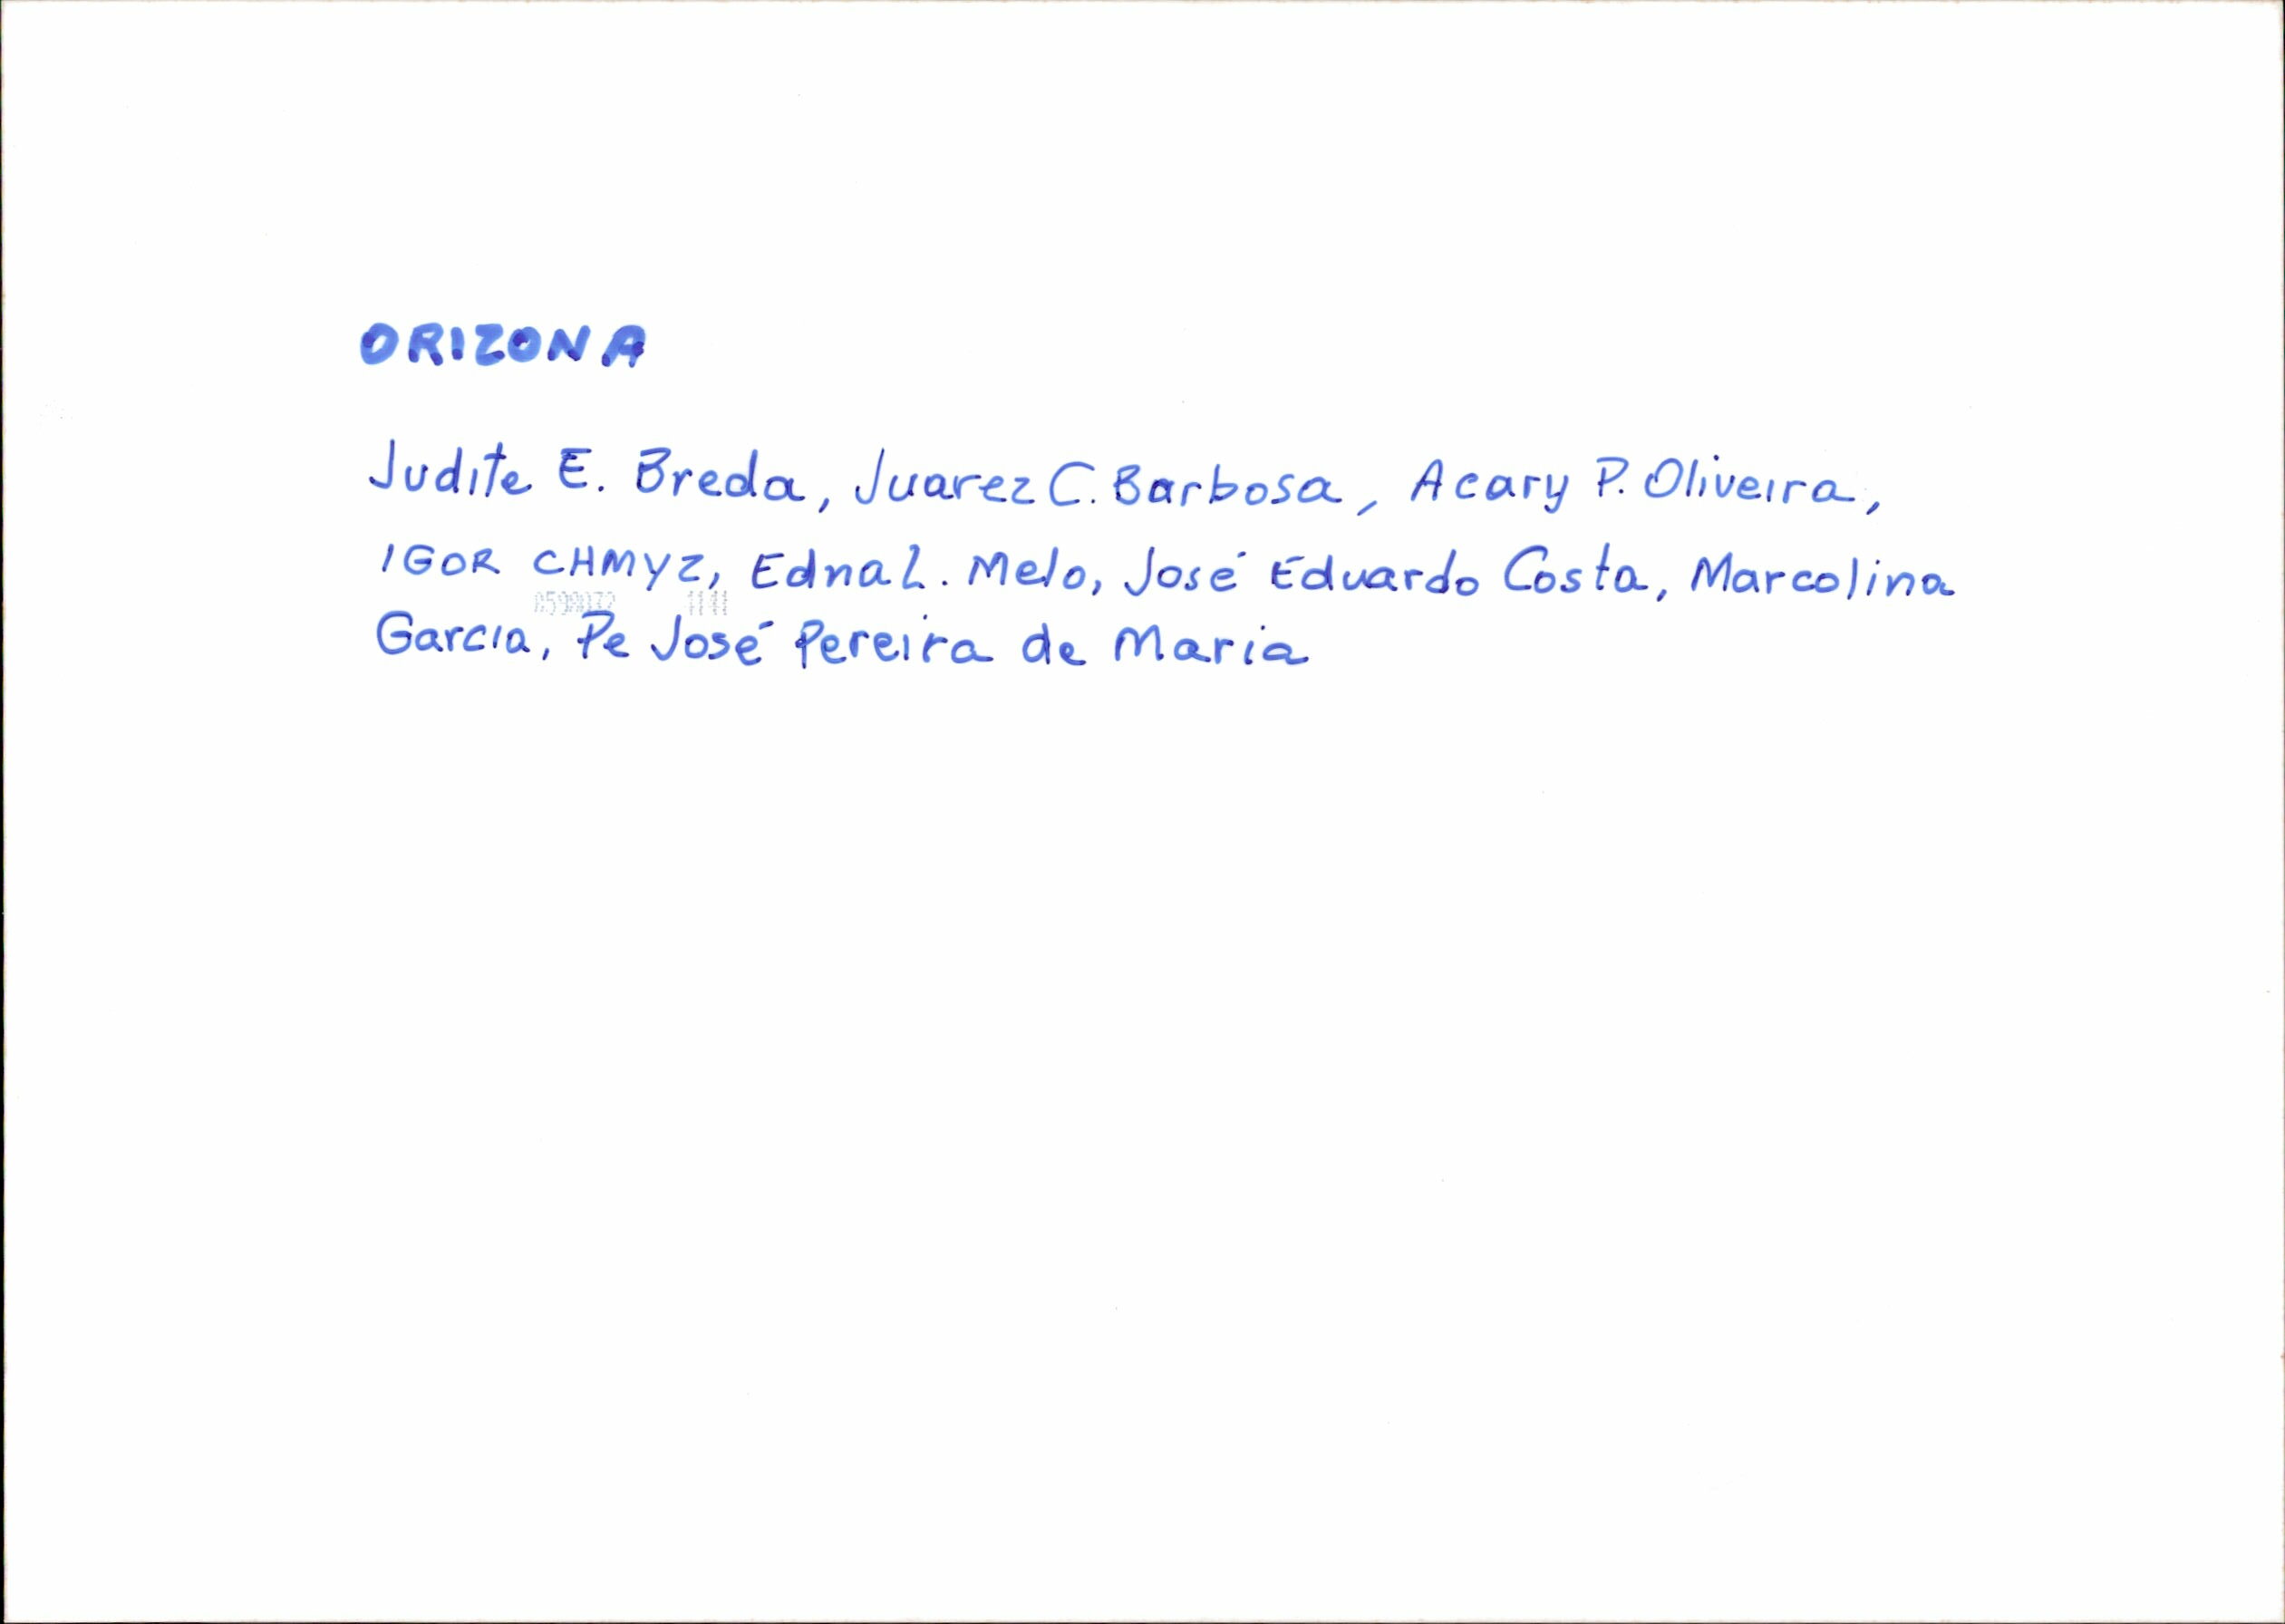 ORIZONA
Judite E. Breda, Juarez C. Barbosa, Acary P. Oliveira,
IGOR CHMYZ, Edna L. Melo, José Eduardo Costa, Marcolina
Garcia, Pe José Pereira de Maria